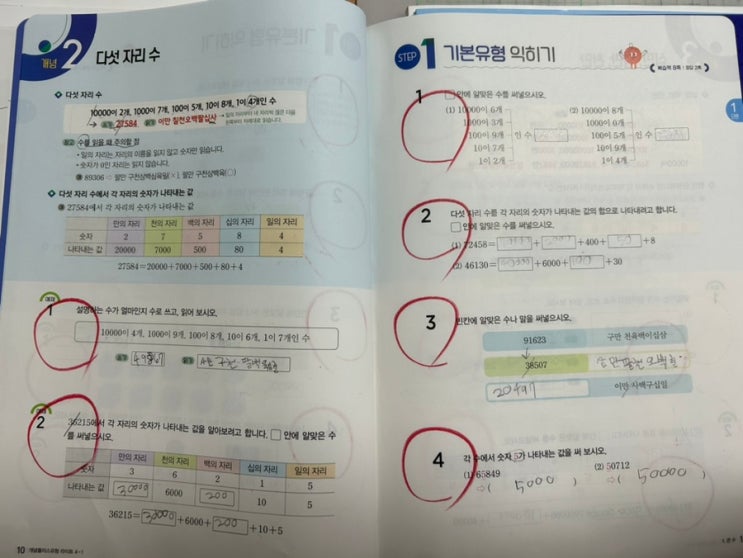 개념 2 다섯 자리 수
다섯 자리 수
10000이 2개, 1000이 7개, 100이 5개, 10이 8개, 1이 4개인 수
쓰기 27584 읽기 이만 칠천오백팔십사
참고 수를 읽을 때 주의할 점
• 일의 자리는 자리의 이름을 읽지 않고 숫자만 읽습니다.
• 숫자가 0인 자리는 읽지 않습니다.
예 89306 ⇨ 팔만 구천삼백육일(×), 팔만 구천삼백육(○)
다섯 자리 수에서 각 자리의 숫자가 나타내는 값
예 27584에서 각 자리의 숫자가 나타내는 값
만의 자리 천의 자리 백의 자리 십의 자리 일의 자리
숫자 2 7 5 8 4
나타내는 값 20000 7000 500 80 4
27584=20000+7000+500+80+4
예제 1 설명하는 수가 얼마인지 수로 쓰고, 읽어 보시오.
10000이 4개, 1000이 9개, 100이 8개, 10이 6개, 1이 7개인 수
쓰기 49867 읽기
예제 2 36215에서 각 자리의 숫자가 나타내는 값을 알아보려고 합니다. □ 안에 알맞은 수
를 써넣으시오.
만의 자리 천의 자리 백의 자리 십의 자리 일의 자리
숫자 3 6 2 1 5
나타내는 값 30000 6000 200 10 5
36215=30000+6000+200+10+5
10 개념플러스유형 라이트 4-1
STEP 1 기본유형 익히기
1 □ 안에 알맞은 수를 써넣으시오.
(1) 10000이 6개 (2) 10000이 8개
1000이 3개 1000이 0개
100이 9개 인 수 100이 5개 인 수
10이 7개 10이 9개
1이 2개 1이 4개
2 다섯 자리 수를 각 자리의 숫자가 나타내는 값의 합으로 나타내려고 합니다.
□ 안에 알맞은 수를 써넣으시오.
(1) 72458= + 2000 +400+ 50 +8
(2) 46130= 40000 +6000+ 100 +30
3 빈칸에 알맞은 수나 말을 써넣으시오.
91623 구만 천육백이십삼
38507
20491 이만 사백구십일
4 각 수에서 숫자 5가 나타내는 값을 써 보시오.
(1) 65849 (2) 50712
⇨ ( 5000 ) ⇨ ( 50000 )